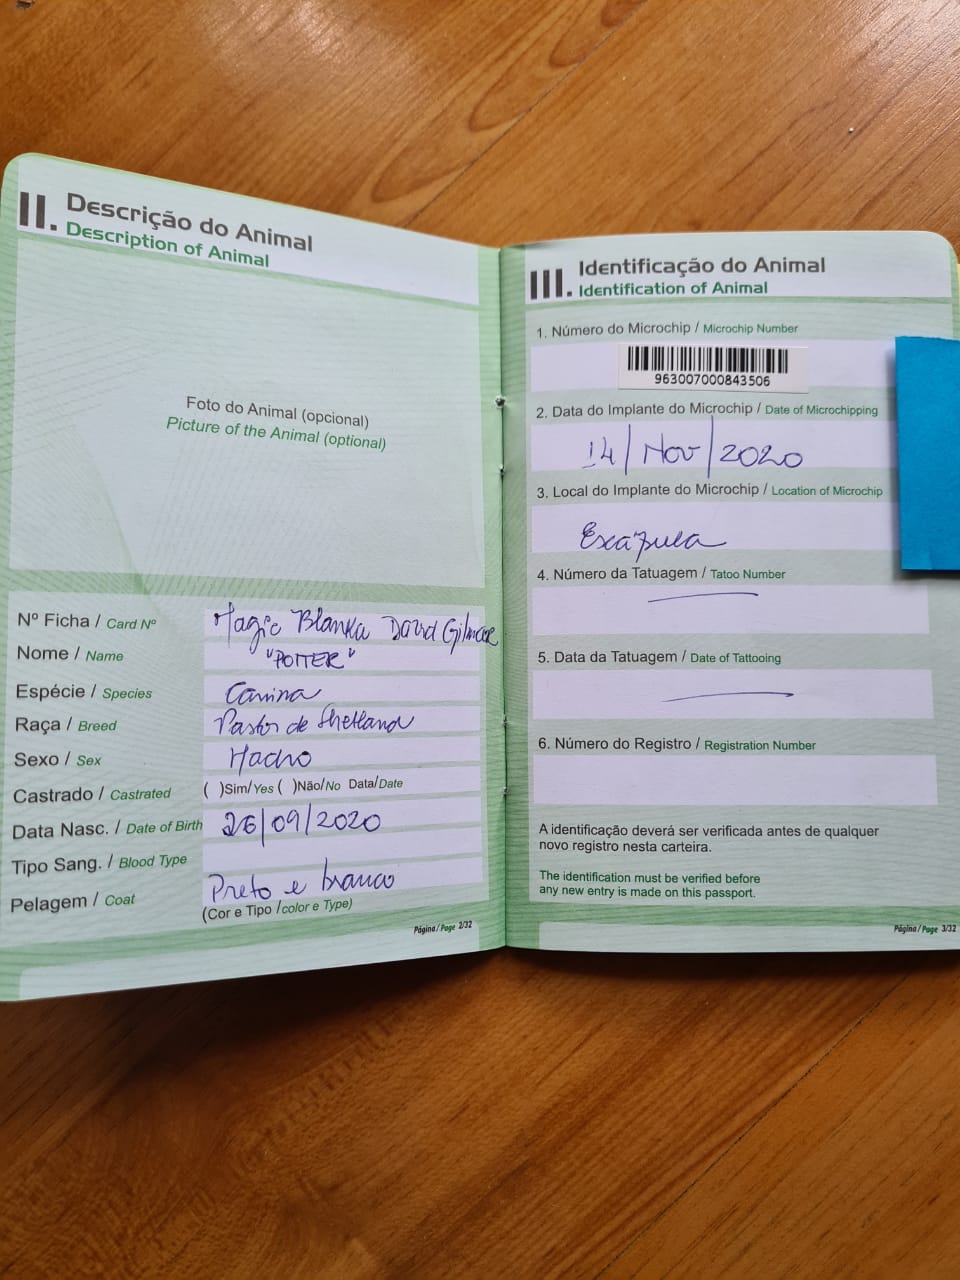 II. Descrição do Animal
Description of Animal
Foto do Animal (opcional)
Picture of the Animal (optional)
Nº Ficha / Card Nº Magic Blanka David Gilmar
Nome / Name "POTTER"
Espécie / Species Canina
Raça / Breed Pastor de Shetland
Sexo / Sex Macho
Castrado / Castrated ( )Sim/Yes ( )Não/No Data/Date
Data Nasc. / Date of Birth 26/09/2020
Tipo Sang. / Blood Type
Pelagem / Coat Preto e branco
(Cor e Tipo /color e Type)
Página/Page 2/32
III. Identificação do Animal
Identification of Animal
1. Número do Microchip / Microchip Number
963007000843506
2. Data do Implante do Microchip / Date of Microchipping
14/Nov/2020
3. Local do Implante do Microchip / Location of Microchip
Escápula
4. Número da Tatuagem / Tatoo Number
5. Data da Tatuagem / Date of Tattooing
6. Número do Registro / Registration Number
A identificação deverá ser verificada antes de qualquer
novo registro nesta carteira.
The identification must be verified before
any new entry is made on this passport.
Página/Page 3/32